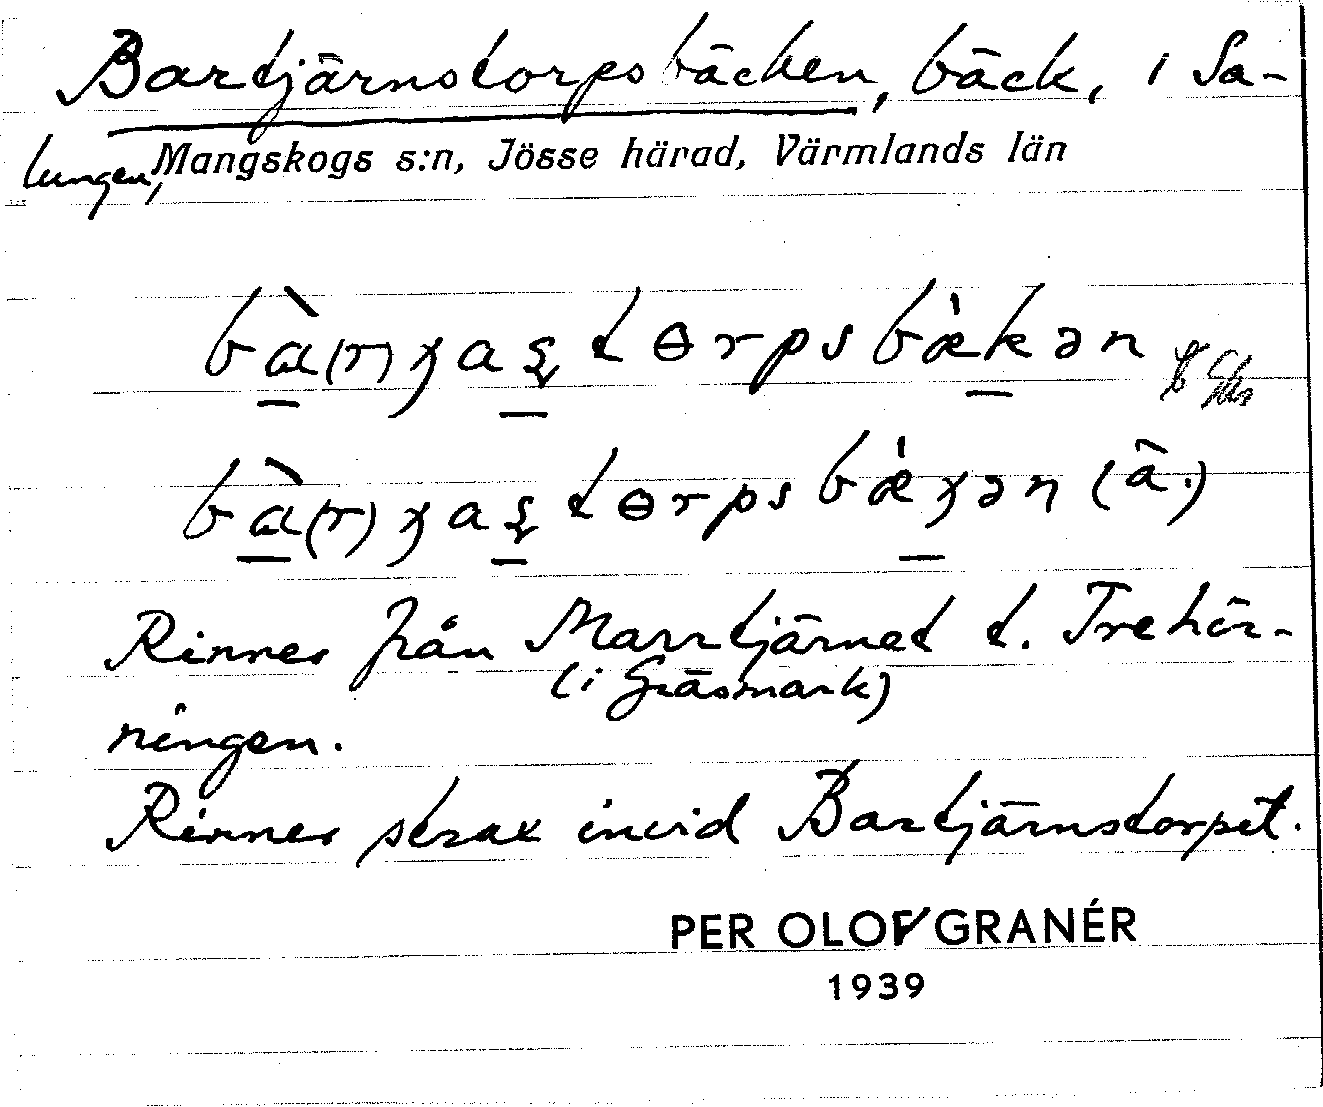 Bartjärnstorpsbäcken, bäck, i Sa-
lungen, Mangskogs s:n, Jösse härad, Värmlands län
bὰ(r)ɟas̨tɵrpsbækən
bὰ(r)ɟas̨tɵrpsbæɟən (ä.)
Rinner från Marrtjärnet t. Trehör-
(i Gräsmark)
ningen.
Rinner strax invid Bartjärnstorpet.
PER OLOF GRANÉR
1939